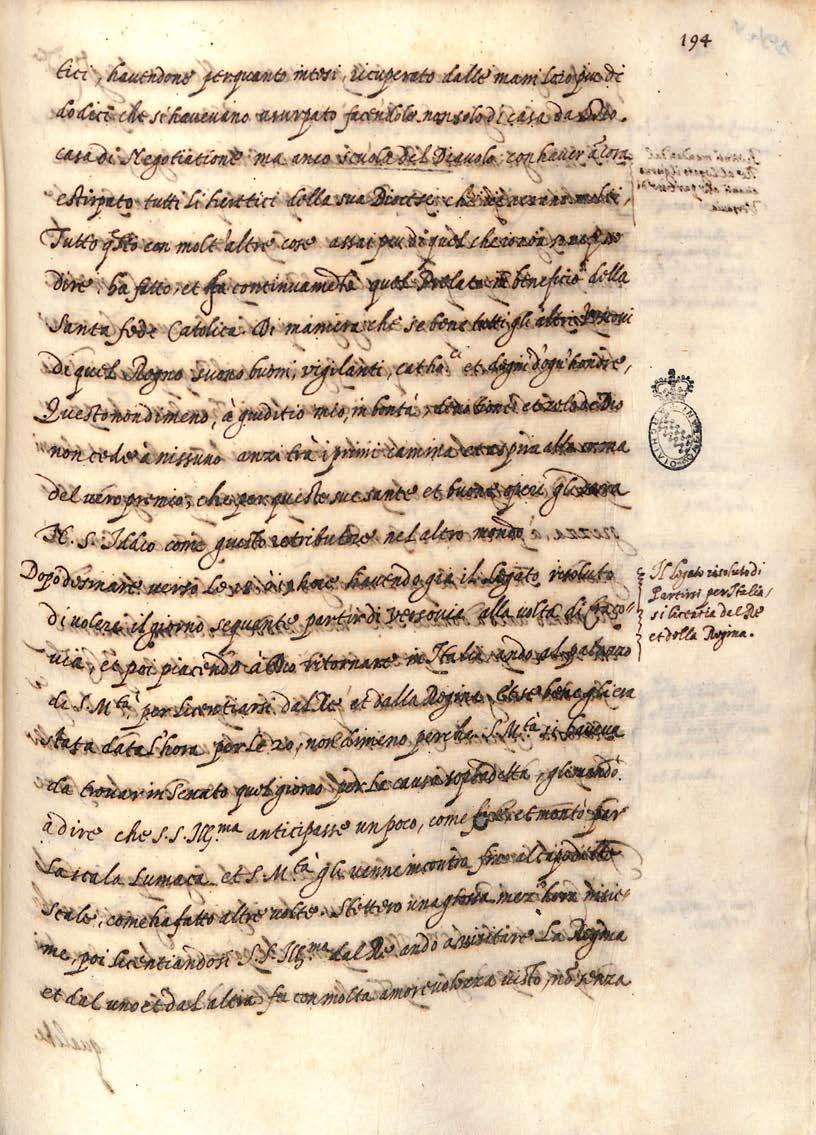 194
tici, havendone perquanto intesi, ricuperato dalle mani loro piu di
dodeci che si havevano usurpato facendole non solo di casa da Dio
casa di Negotiatione ma anco scuola del Diavolo, con haver ancora
estirpato tutti li heretici della sua Diocese che vi erano molti,
Tutto q.sto con molt'altre cose assai piu di quel che io non saprei
dire, ha fatto, et fa continuamente quel Prelato in beneficio della
Santa fede Catolica. Di maniera che se bene tutti gli altri Vescovi
di quel Regno suono buoni, vigilanti, catho.ci et degni d'ogn'honore,
Questo nondimeno, à giuditio mio, in bontà, devotione et zelo de Dio
non cede à nissuno anzi trà i primi camina et aspira alla corona
del vero premio, che per queste sue sante et buone operi gli darà
N. S. Iddio come giusto retributore nel altro mondo
Dopo desinare verso le 18 ò 19 hore havendo già il Legato risoluto
di volere il giorno sequente partir di Versovia alla volta di Craco-
via, et poi piacendo à Dio ritornare in Italia, andò al palazzo
di S. M.tà per licentiarsi dal Rè et dalla Regina, et se bene gli era
stata data l'hora per le 20, nondimeno perche S. M.tà si haveva
da trovar in Senato quel giorno per la causa sopradetta, gli mandò
à dire che S. S. Ill.ma anticipasse un poco, come fece, et montò per
la scala Lumaca et S. M.tà gli venne incontro fino al capo delle
scale, come ha fatto altre volte. Stettero una grossa mez'hora insie-
me, poi licentiandosi S. S. Ill.ma dal Rè andò à visitare la Regina
et dal uno et dal altra fu con molta amorevolezza visto, nò senza
qualche
Il Legato risoluto di
Partirsi per Italia,
si licentia dal Rè
et dalla Regina.